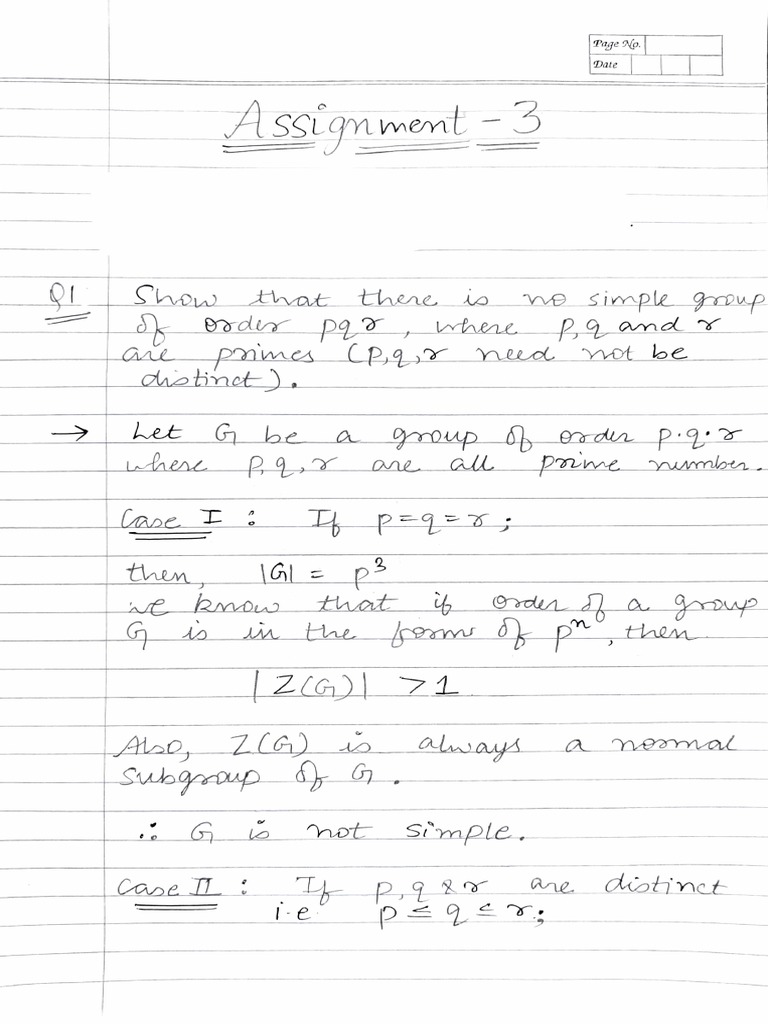 Page No.
Date
Assignment - 3
Q1 Show that there is no simple group
of order pqr, where p,q and r
are primes (p,q,r need not be
distinct).
→ Let G be a group of order p·q·r
where p,q,r are all prime number.
Case I : If p=q=r;
then, |G| = p³
we know that if order of a group
G is in the form of pⁿ, then
|Z(G)| >1
Also, Z(G) is always a normal
subgroup of G.
∴ G is not simple.
Case II : If p,q & r are distinct
i.e p ≤ q ≤ r;